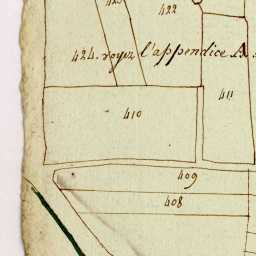 423 422
424. voyez l'appendice A
411
410
409
408